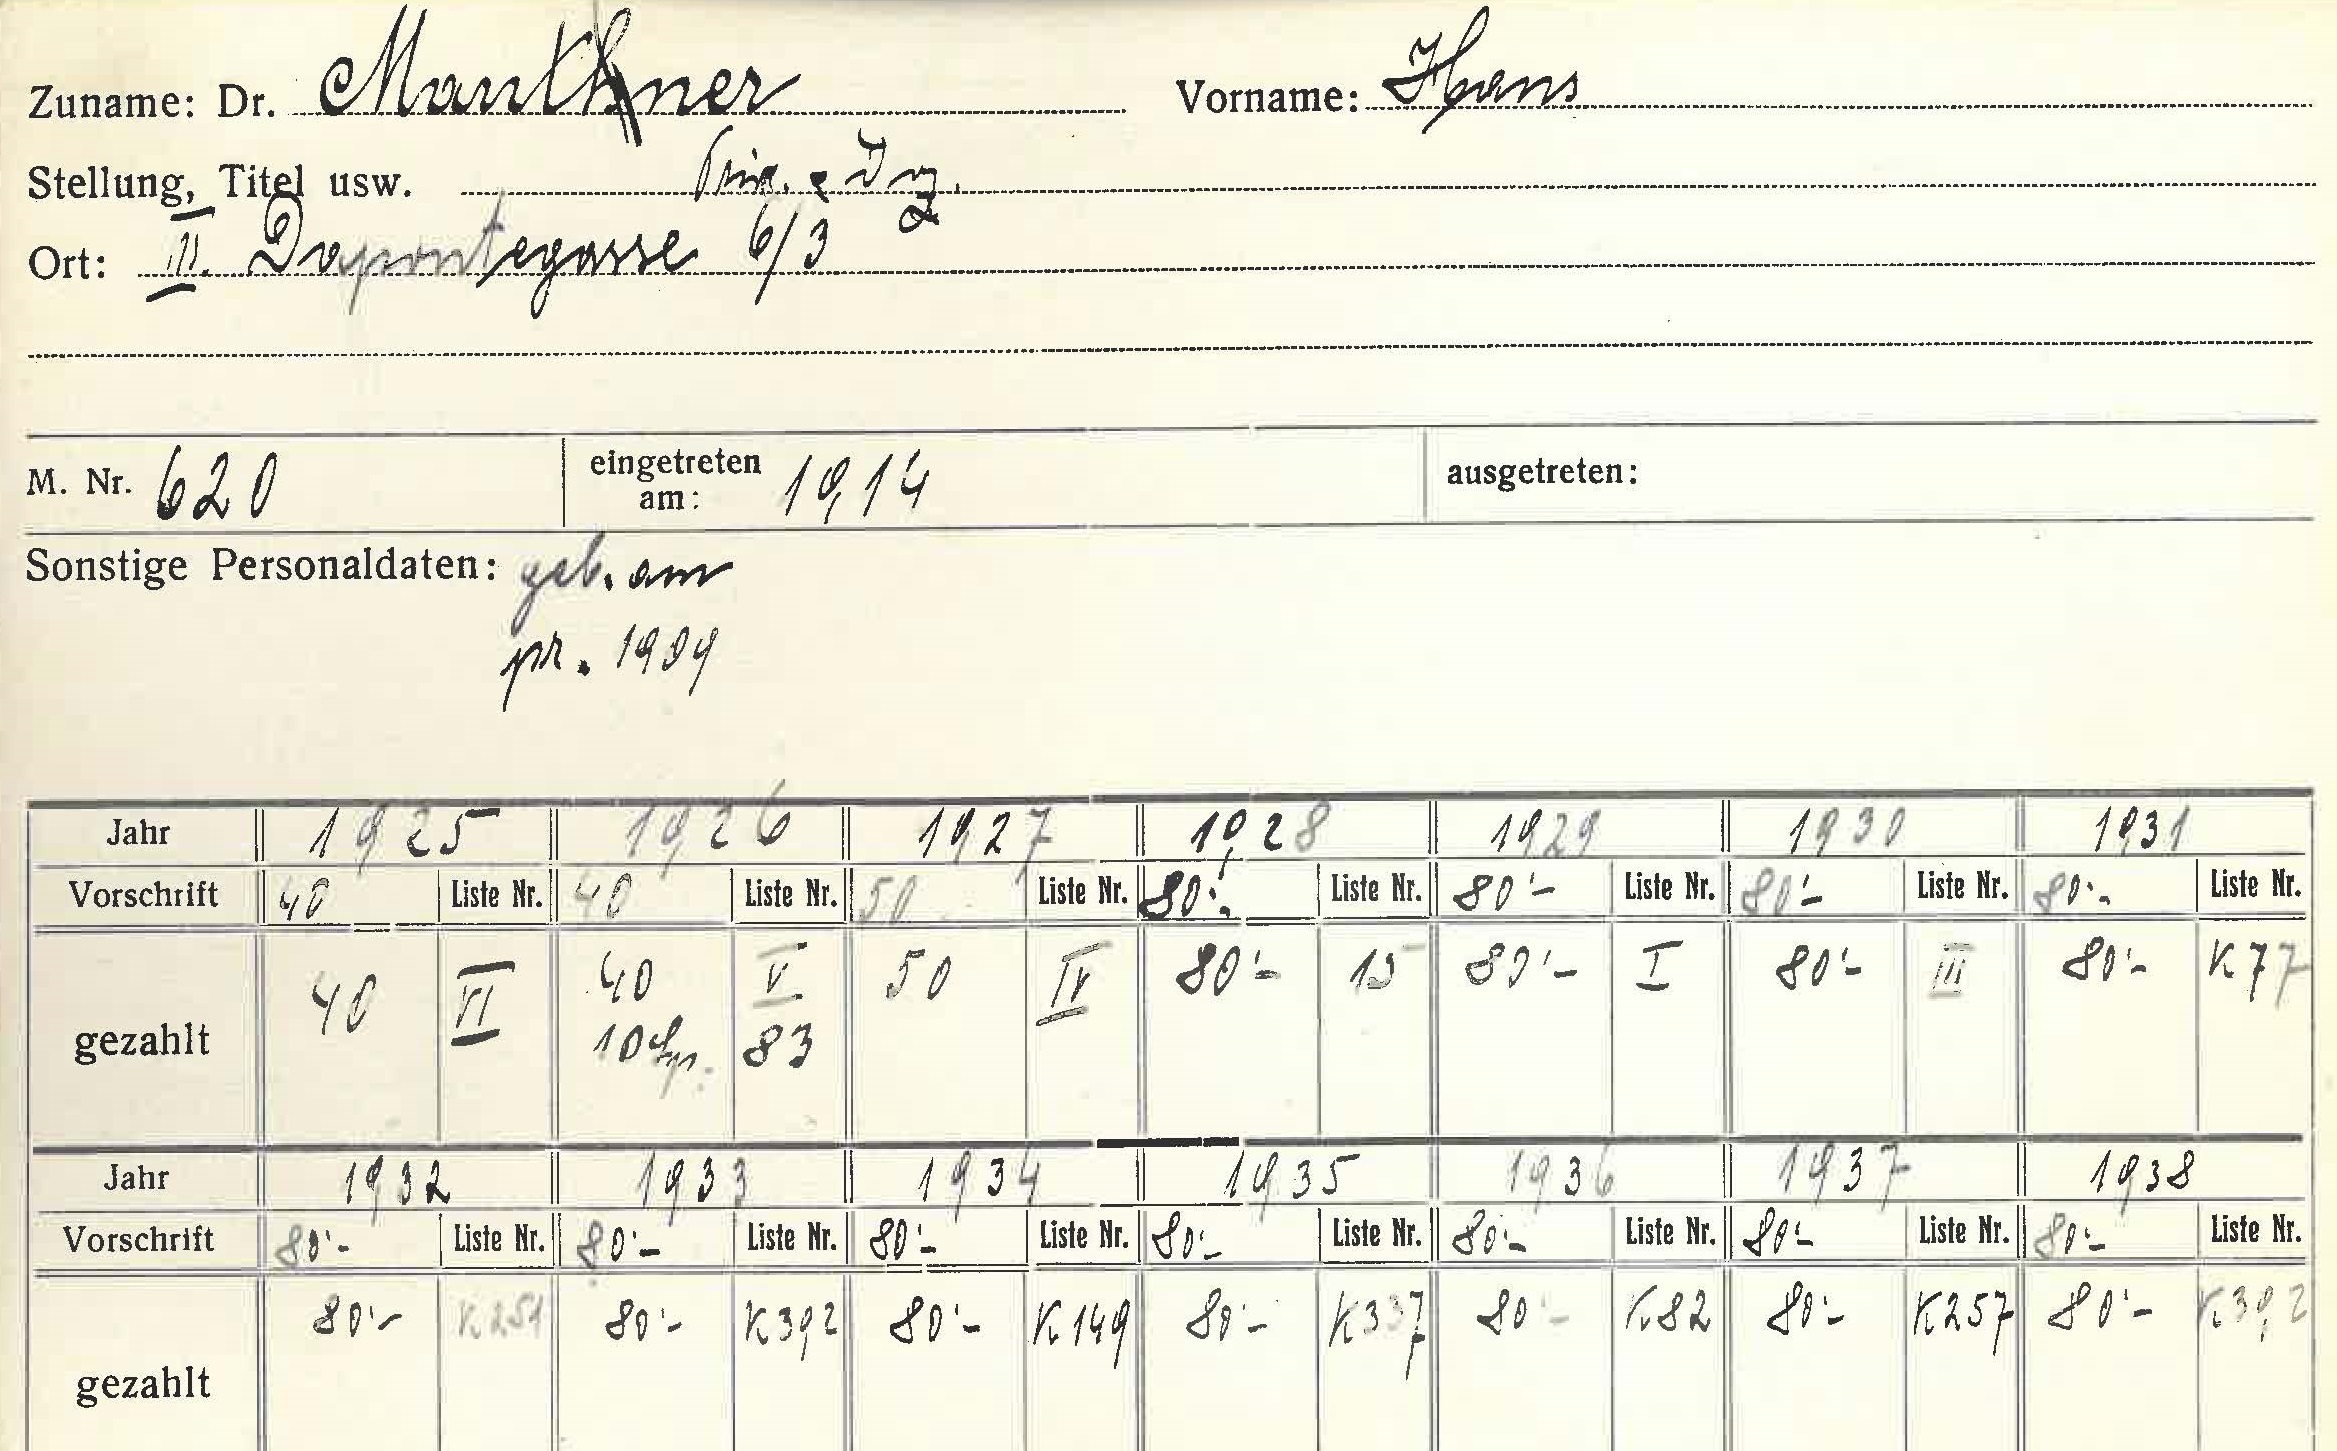 Zuname: Dr. Mauthner Vorname: Hans
Stellung, Titel usw. Priv. Doz.
Ort: III. Dapontegasse 6/3
M. Nr. 620 eingetreten am: 1914 ausgetreten:
Sonstige Personaldaten: geb. am
pr. 1909
Jahr 1925 1926 1927 1928 1929 1930 1931
Vorschrift 40 Liste Nr. 40 Liste Nr. 50 Liste Nr. 80'- Liste Nr. 80'- Liste Nr. 80'- Liste Nr. 80'- Liste Nr.
gezahlt 40 VI 40 V 50 IV 80'- 15 80'- I 80'- III 80'- K77
10 83
Jahr 1932 1933 1934 1935 1936 1937 1938
Vorschrift 80'- Liste Nr. 80'- Liste Nr. 80'- Liste Nr. 80'- Liste Nr. 80'- Liste Nr. 80'- Liste Nr. 80'- Liste Nr.
gezahlt 80'- K251 80'- K392 80'- K149 80'- K337 80'- K82 80'- K257 80'- K392